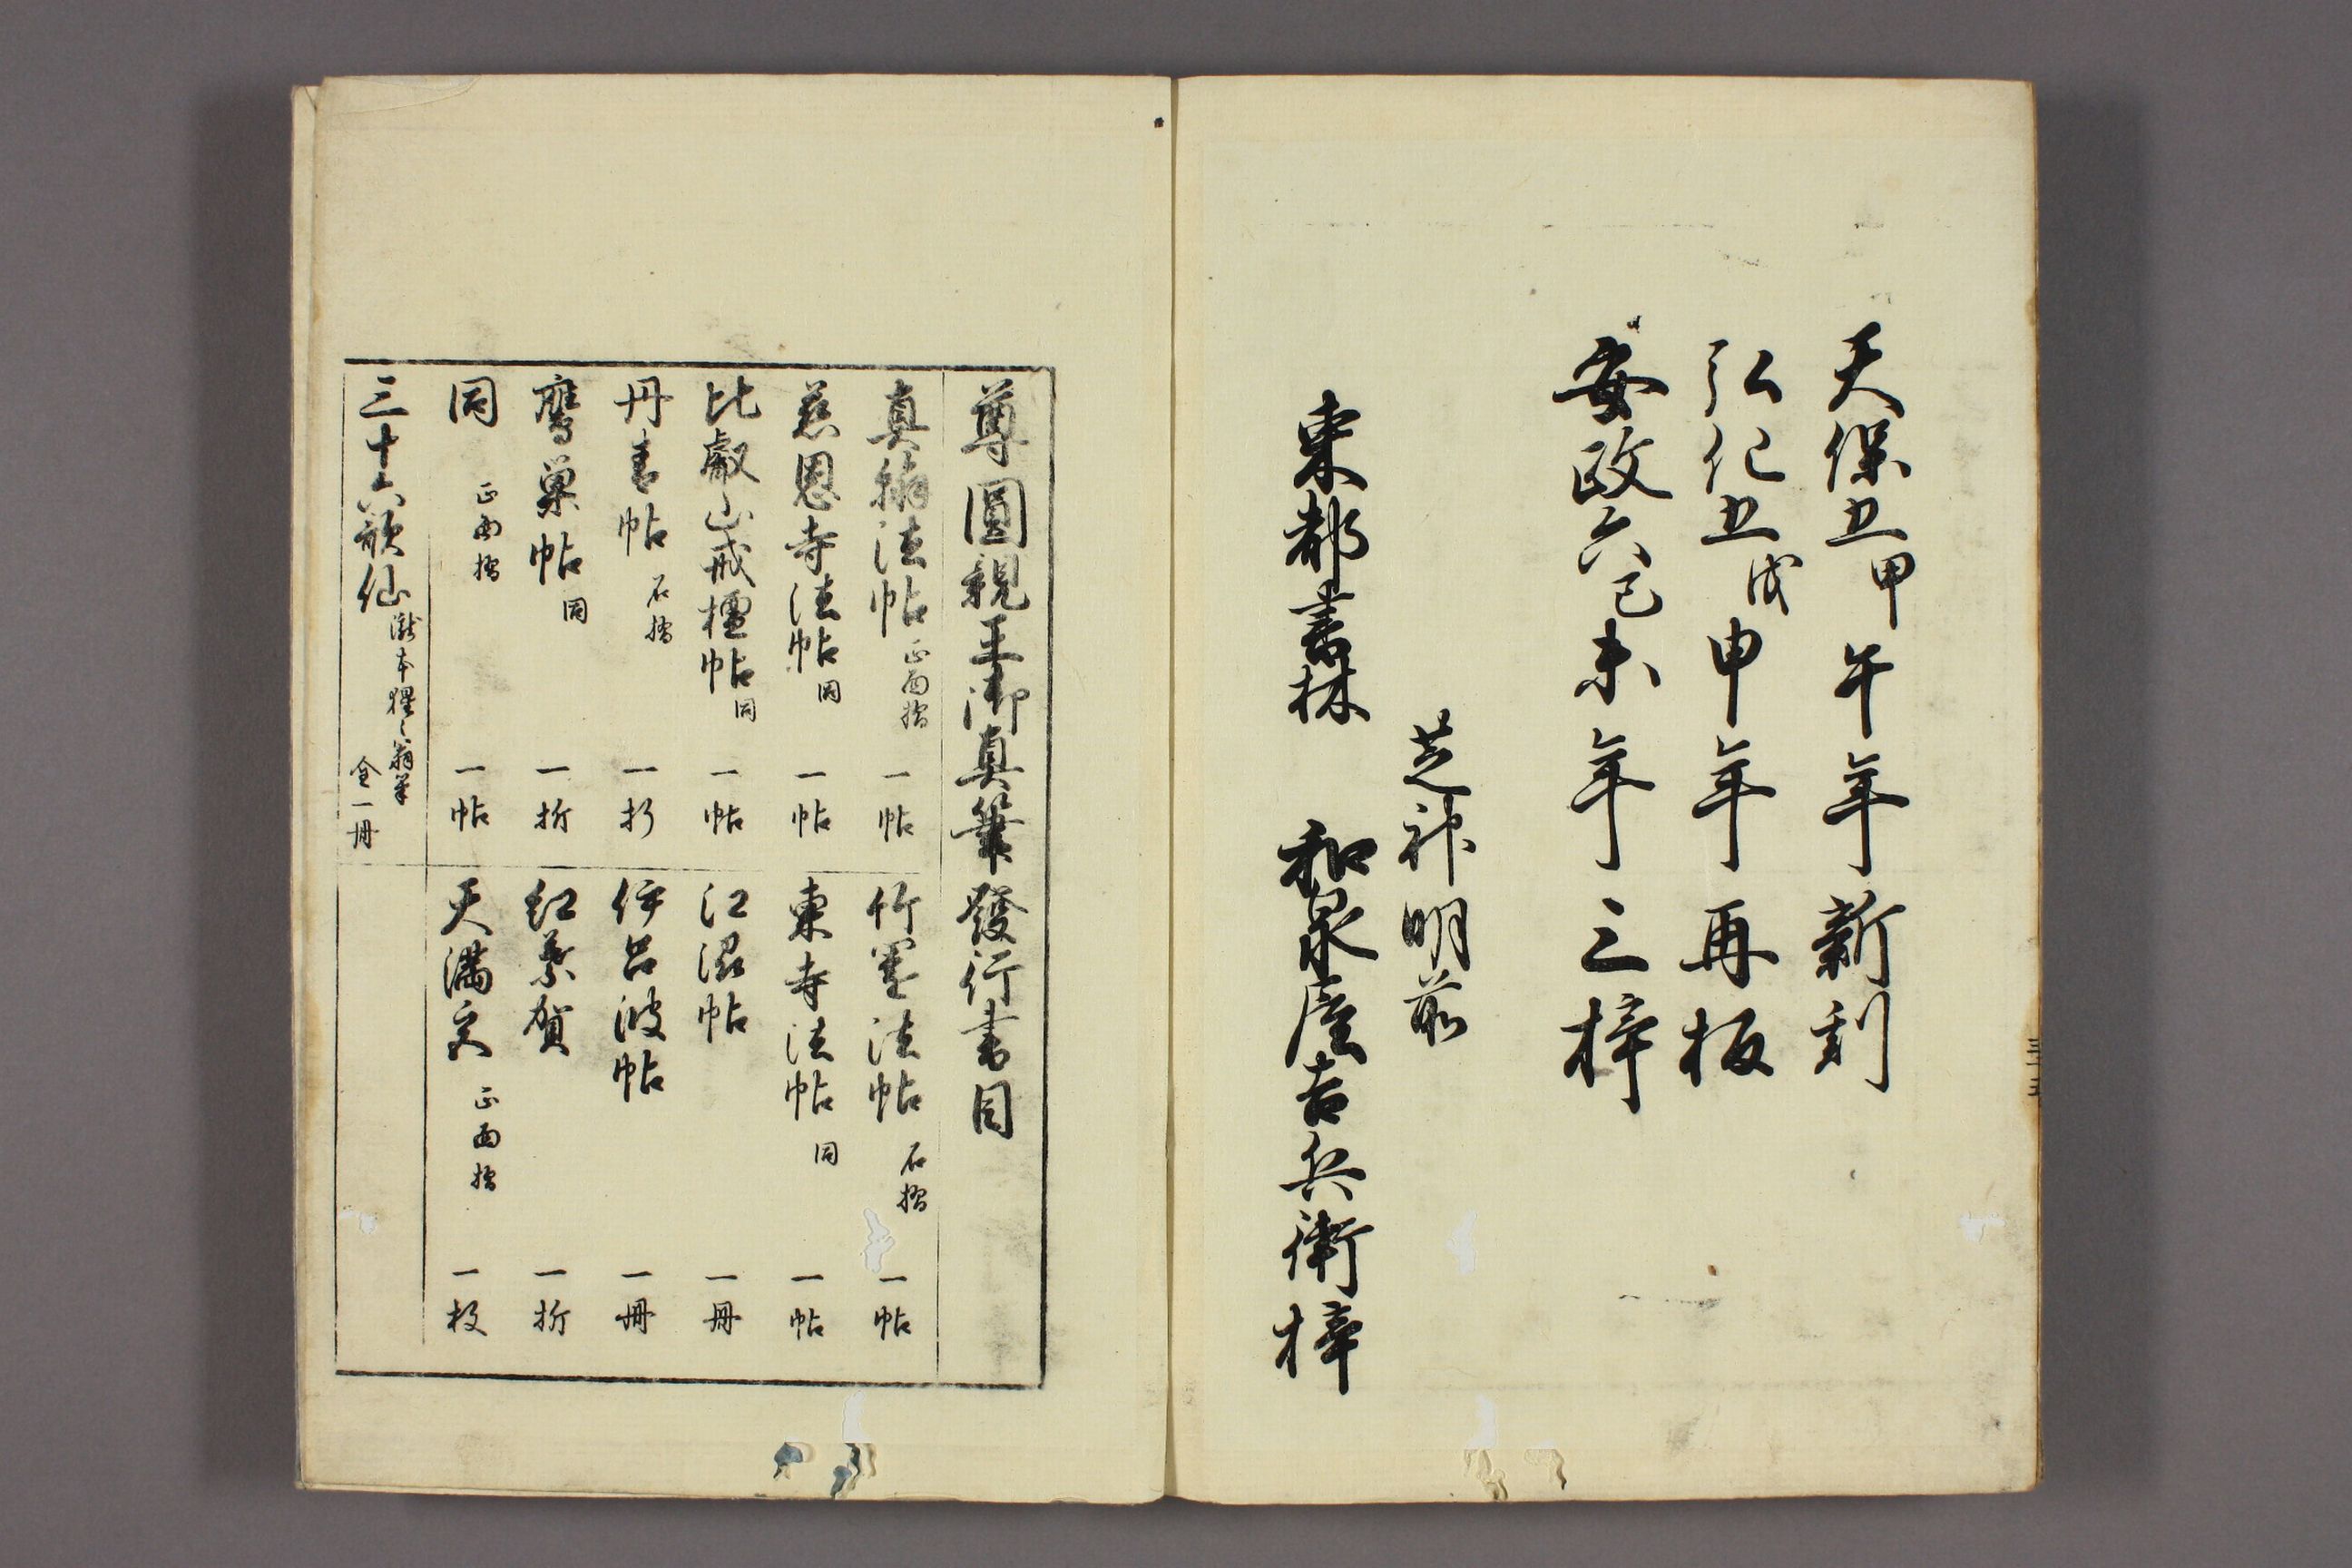 天保五甲午年新刻
弘化五戊申年再板
安政六己未年三梓
芝神明前
東都書林 和泉屋吉兵衛梓
三十五
尊圓親王御真筆發行書目
真翰法帖 正面摺 一帖
竹墨法帖 石摺 一帖
慈恩寺法帖 同 一帖
東寺法帖 同 一帖
比叡山戒檀帖 同 一帖
江沼帖 一冊
丹青帖 石摺 一折
伊呂波帖 一冊
鷹巣帖 同 一折
紅葉賀 一折
同 正面摺 一帖
天満宮 正面摺 一枚
三十六歌仙 瀧本猩々翁筆 全一冊